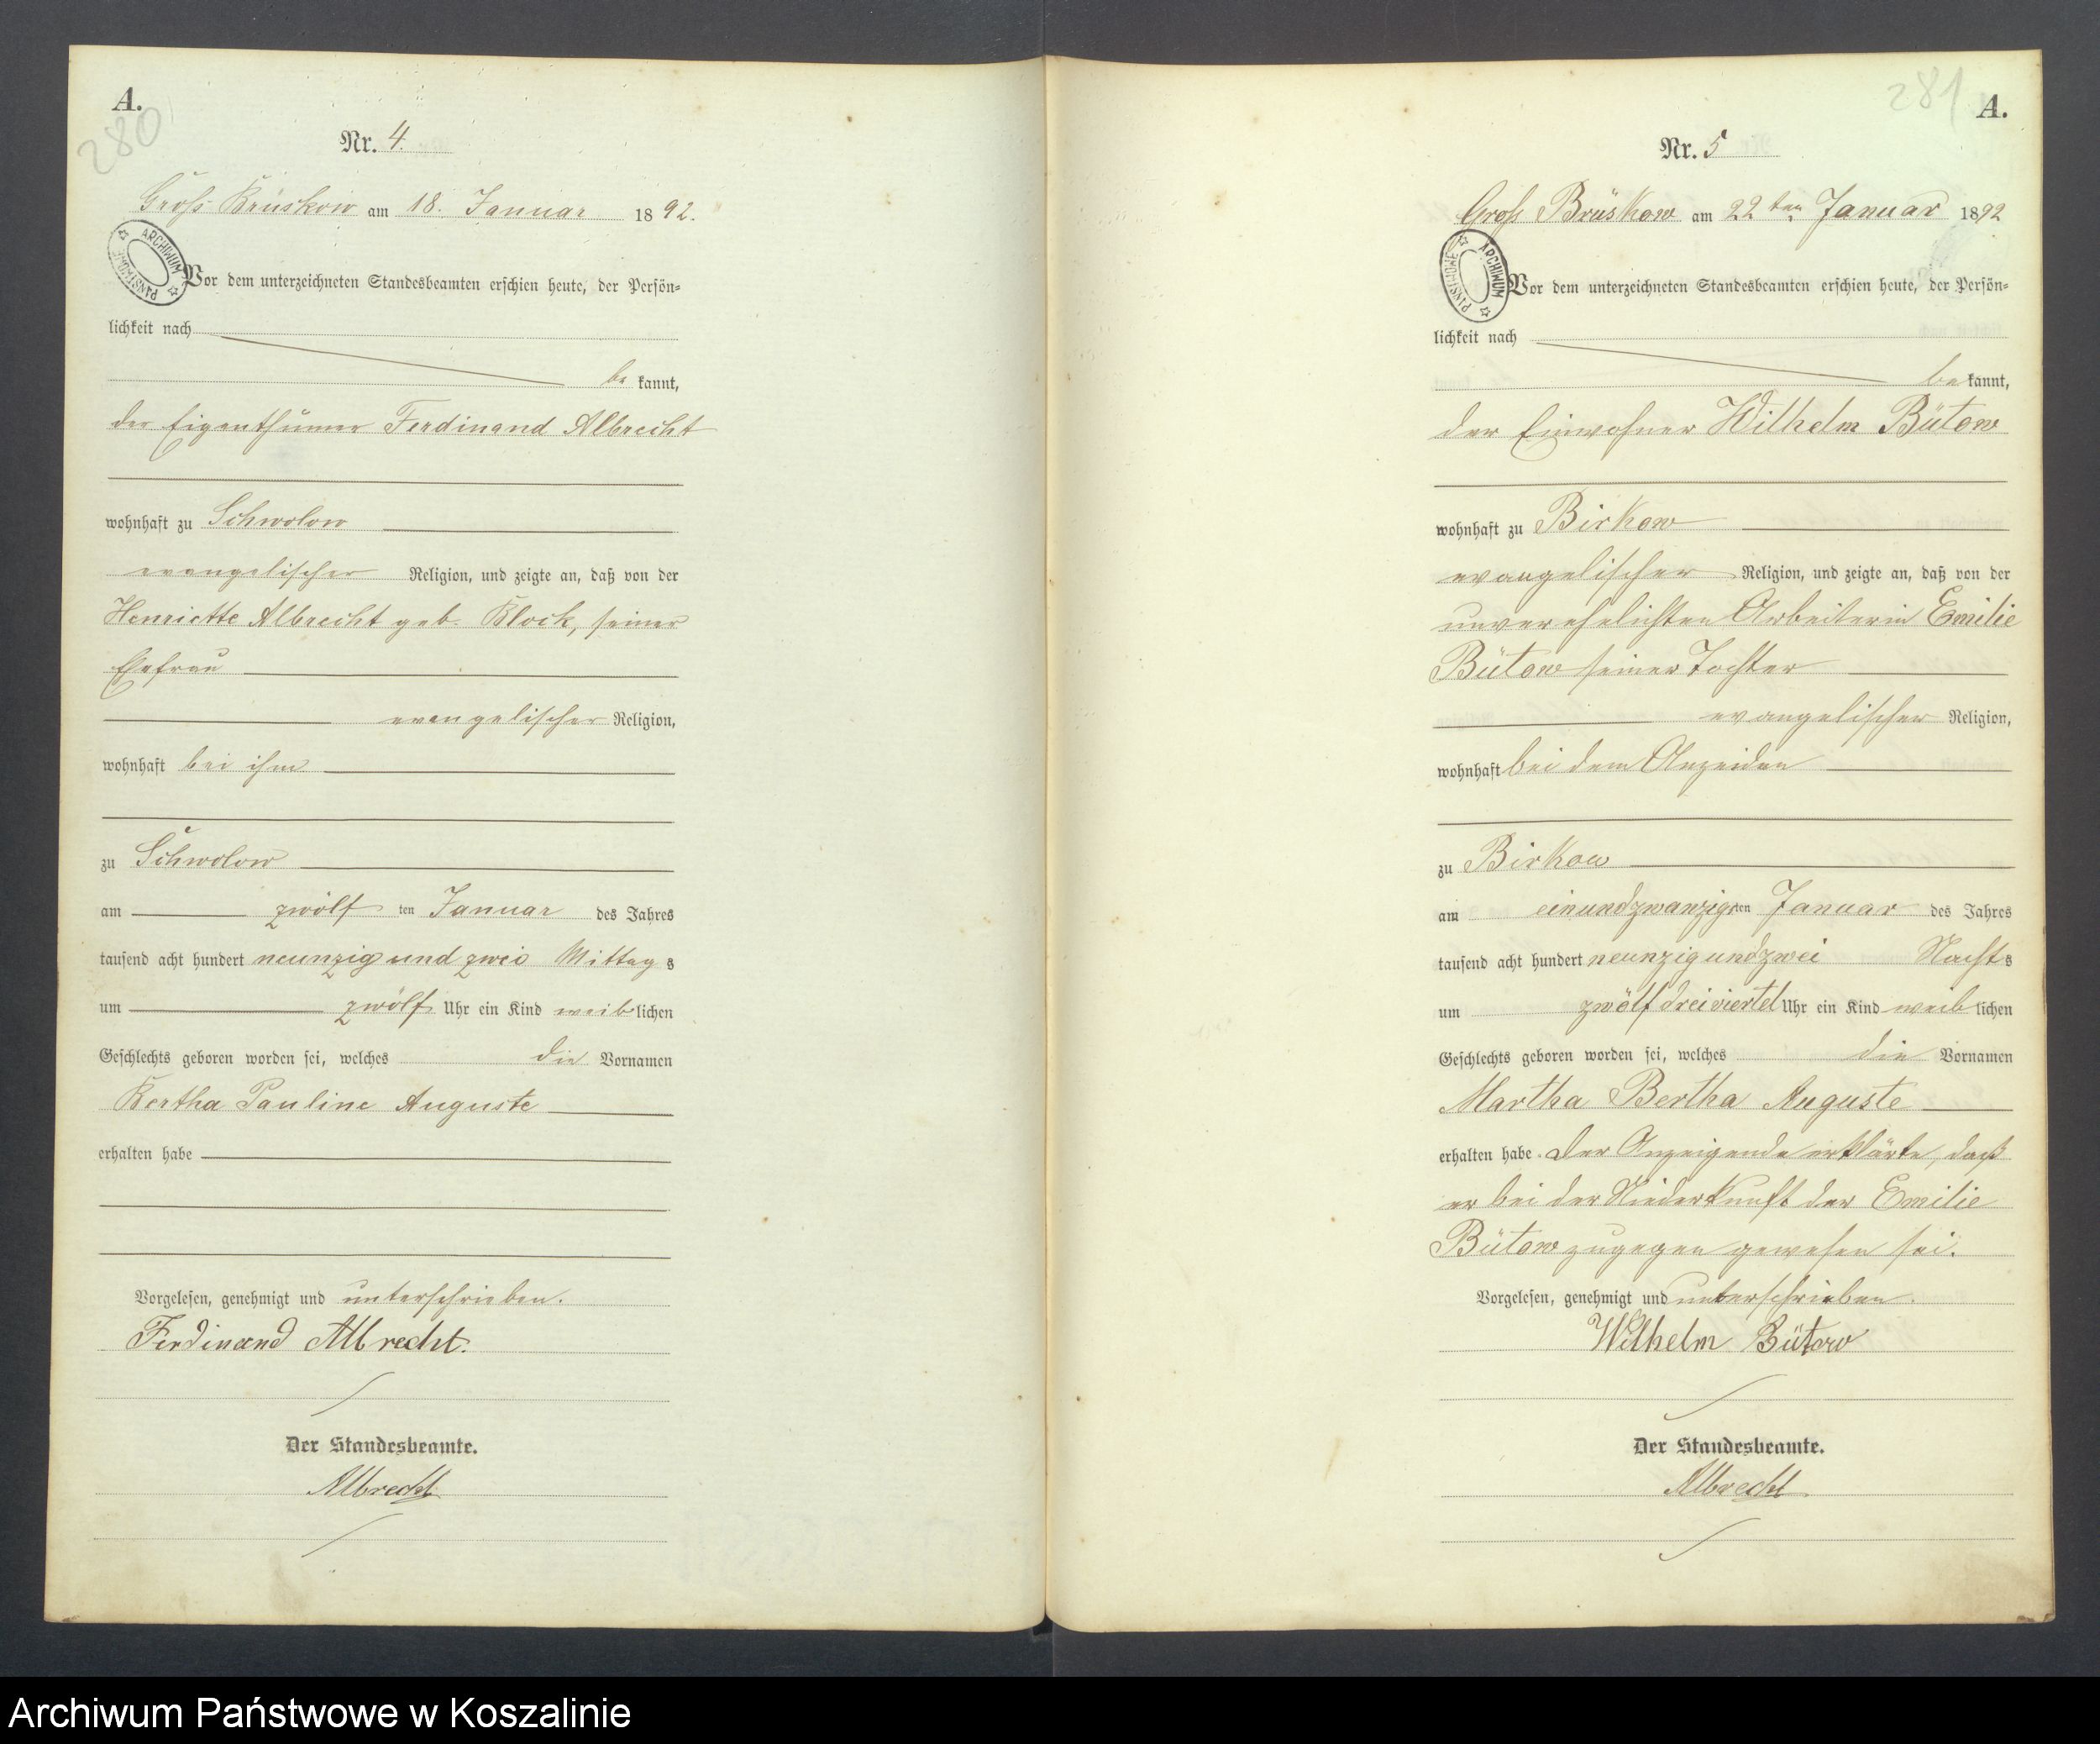 A.
280
Nr. 4.
Groß Brüskow am 18. Januar 1892.
ARCHIWUM PAŃSTWOWE
Vor dem unterzeichneten Standesbeamten erschien heute, der Persön-
lichkeit nach
be kannt,
der Eigenthümer Ferdinand Albrecht
wohnhaft zu Schwolow
evangelischer Religion, und zeigte an, daß von der
Henriette Albrecht geb. Block, seiner
Ehefrau
evangelischer Religion,
wohnhaft bei ihm
zu Schwolow
am zwölf ten Januar des Jahres
tausend acht hundert neunzig und zwei Mittag s
um zwölf Uhr ein Kind weib lichen
Geschlechts geboren worden sei, welches die Vornamen
Bertha Pauline Auguste
erhalten habe
Vorgelesen, genehmigt und unterschrieben.
Ferdinand Albrecht.
Der Standesbeamte.
Albrecht
281
A.
Nr. 5
Groß Brüskow am 22ten Januar 1892
ARCHIWUM PAŃSTWOWE
Vor dem unterzeichneten Standesbeamten erschien heute, der Persön-
lichkeit nach
be kannt,
der Einwohner Wilhelm Bütow
wohnhaft zu Birkow
evangelischer Religion, und zeigte an, daß von der
unverehelichten Arbeiterin Emilie
Bütow seiner Tochter
evangelischer Religion,
wohnhaft bei dem
zu Birkow
am einundzwanzigsten Januar des Jahres
tausend acht hundert neunzig und zwei Nacht s
um zwölf dreiviertel Uhr ein Kind weib lichen
Geschlechts geboren worden sei, welches die Vornamen
Martha Bertha Auguste
erhalten habe. Der Anzeigende erklärte, daß
er bei der Niederkunft der Emilie
Bütow zugegen gewesen sei.
Vorgelesen, genehmigt und unterschrieben.
Wilhelm Bütow
Der Standesbeamte.
Albrecht
Archiwum Państwowe w Koszalinie